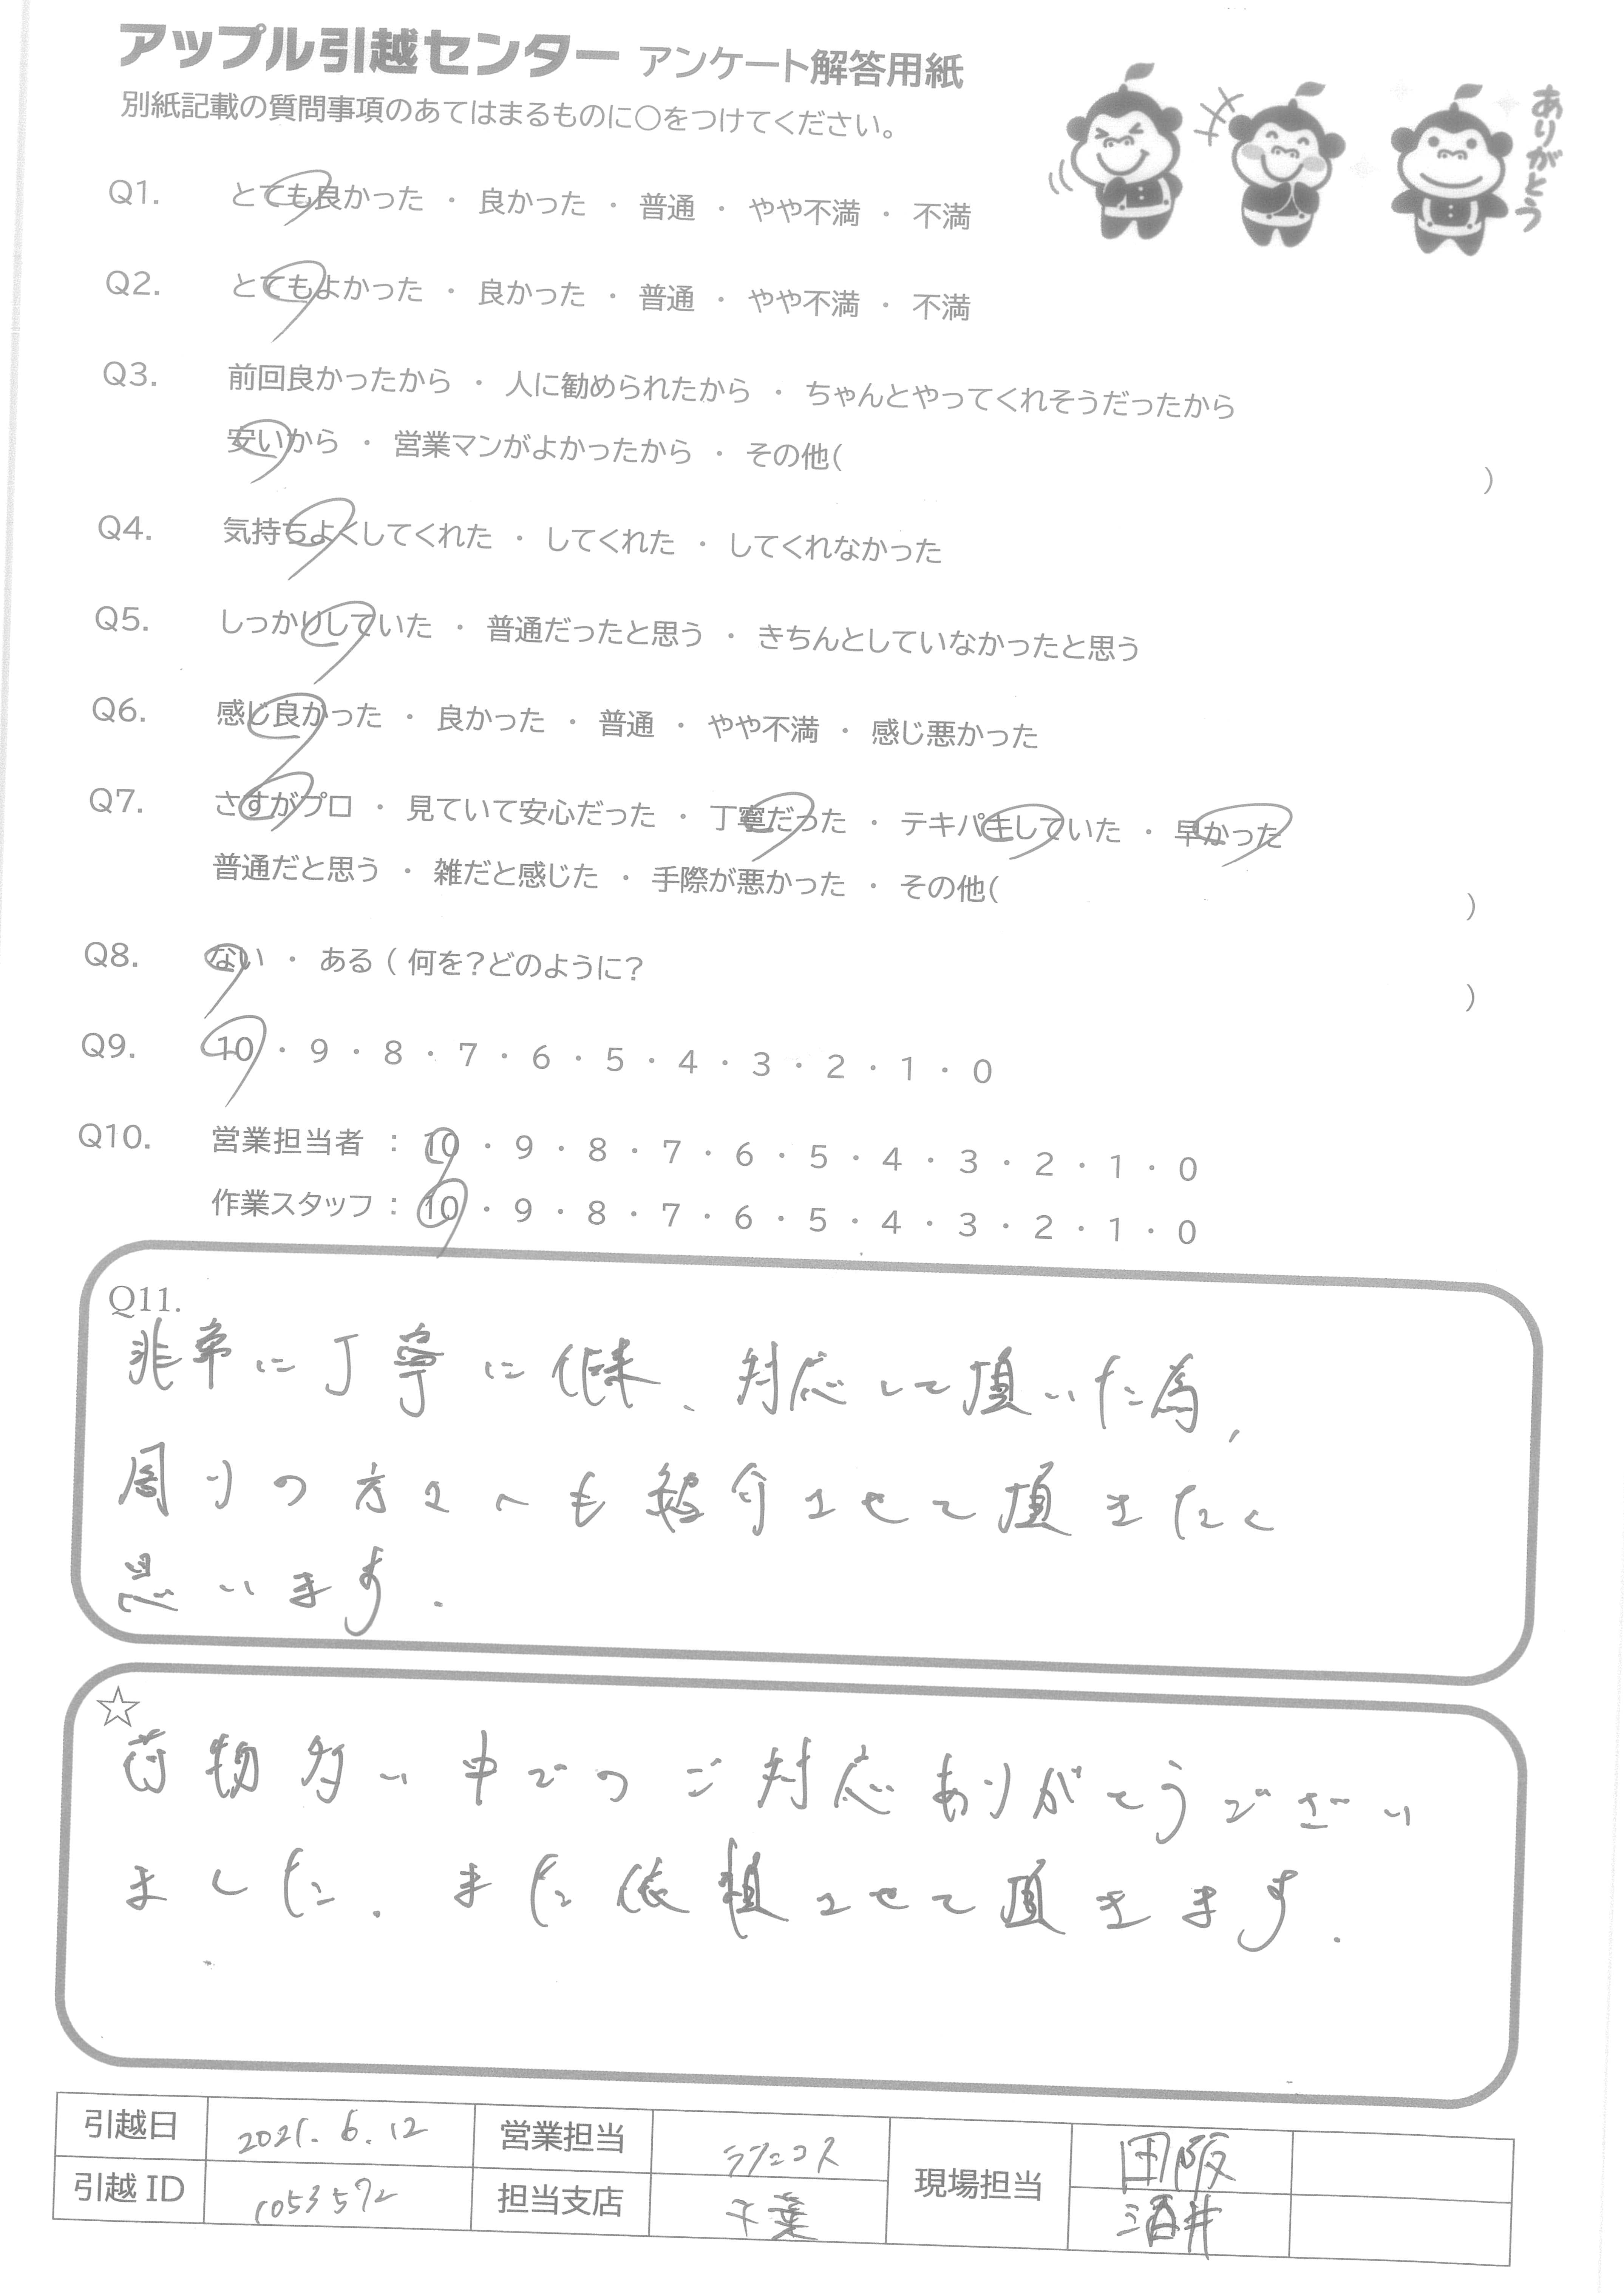 アップル引越センター アンケート解答用紙
別紙記載の質問事項のあてはまるものに○をつけてください。
ありがとう
Q1. とても良かった ・ 良かった ・ 普通 ・ やや不満 ・ 不満
Q2. とてもよかった ・ 良かった ・ 普通 ・ やや不満 ・ 不満
Q3. 前回良かったから ・ 人に勧められたから ・ ちゃんとやってくれそうだったから
安いから ・ 営業マンがよかったから ・ その他( )
Q4. 気持ちよくしてくれた ・ してくれた ・ してくれなかった
Q5. しっかりしていた ・ 普通だったと思う ・ きちんとしていなかったと思う
Q6. 感じ良かった ・ 良かった ・ 普通 ・ やや不満 ・ 感じ悪かった
Q7. さすがプロ ・ 見ていて安心だった ・ 丁寧だった ・ テキパキしていた ・ 早かった
普通だと思う ・ 雑だと感じた ・ 手際が悪かった ・ その他( )
Q8. ない ・ ある ( 何を?どのように? )
Q9. 10 ・ 9 ・ 8 ・ 7 ・ 6 ・ 5 ・ 4 ・ 3 ・ 2 ・ 1 ・ 0
Q10. 営業担当者 : 10 ・ 9 ・ 8 ・ 7 ・ 6 ・ 5 ・ 4 ・ 3 ・ 2 ・ 1 ・ 0
作業スタッフ : 10 ・ 9 ・ 8 ・ 7 ・ 6 ・ 5 ・ 4 ・ 3 ・ 2 ・ 1 ・ 0
Q11.
非常に丁寧に作業、対応して頂いた為、
周りの方々へも紹介させて頂きたく
思います.
☆
荷物多い中でのご対応ありがとうござい
ました. また依頼させて頂きます.
引越日 2021.6.12 営業担当 現場担当 田阪
引越ID 1053572 担当支店 千葉 酒井